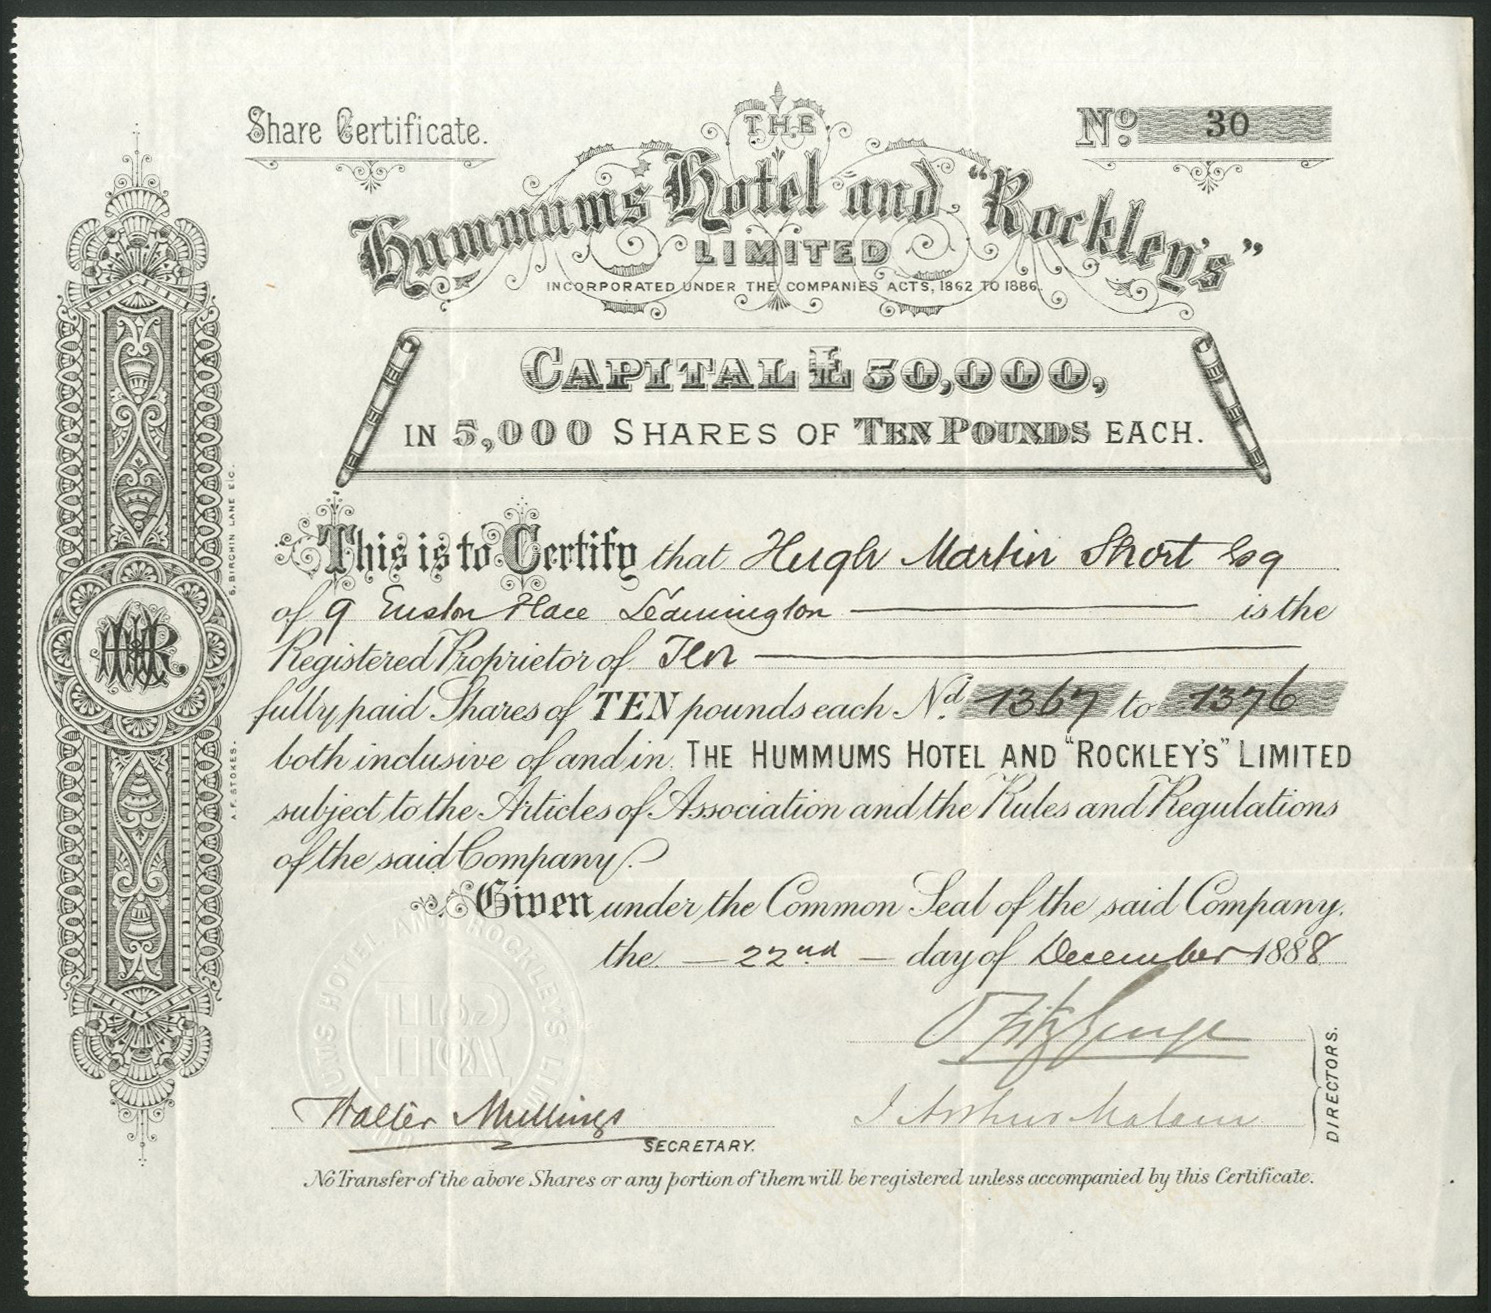 Share Certificate.
No. 30
THE
Hummums Hotel and "Rockley's"
LIMITED
INCORPORATED UNDER THE COMPANIES ACTS, 1862 TO 1886.
CAPITAL £50,000,
IN 5,000 SHARES OF TEN POUNDS EACH.
This is to Certify that Hugh Martin Short Esq
of 9 Euston Place Leamington is the
Registered Proprietor of Ten
fully paid Shares of TEN pounds each Nd. 1367 to 1376
both inclusive of and in THE HUMMUMS HOTEL AND "ROCKLEY'S" LIMITED
subject to the Articles of Association and the Rules and Regulations
of the said Company.
Given under the Common Seal of the said Company.
the 22nd day of December 1888
FitzGeorge
J Arthur Malcom
DIRECTORS.
Walter Mullings
SECRETARY.
No Transfer of the above Shares or any portion of them will be registered unless accompanied by this Certificate.
A.F. STOKES. 5, BIRCHIN LANE E.C.
HUMMUMS HOTEL AND ROCKLEY'S LIMITED